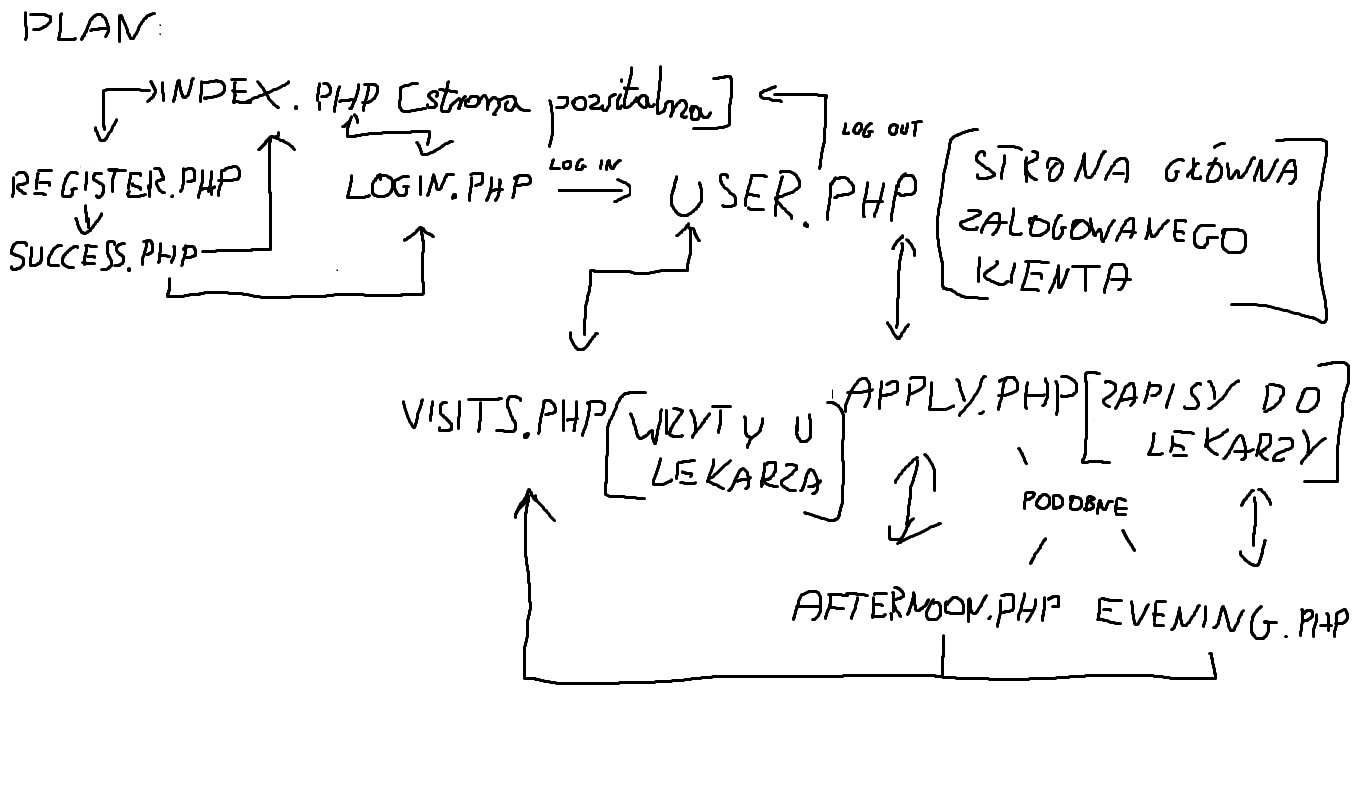 PLAN:
INDEX.PHP [strona pozwitalna]
LOG OUT
REGISTER.PHP
LOGIN.PHP
LOG IN
USER.PHP
[STRONA GŁÓWNA
ZALOGOWANEGO
KIENTA]
SUCCESS.PHP
VISITS.PHP [WIZYTY U
LEKARZA]
APPLY.PHP [ZAPISY DO
LEKARZY]
PODOBNE
AFTERNOON.PHP
EVENING.PHP